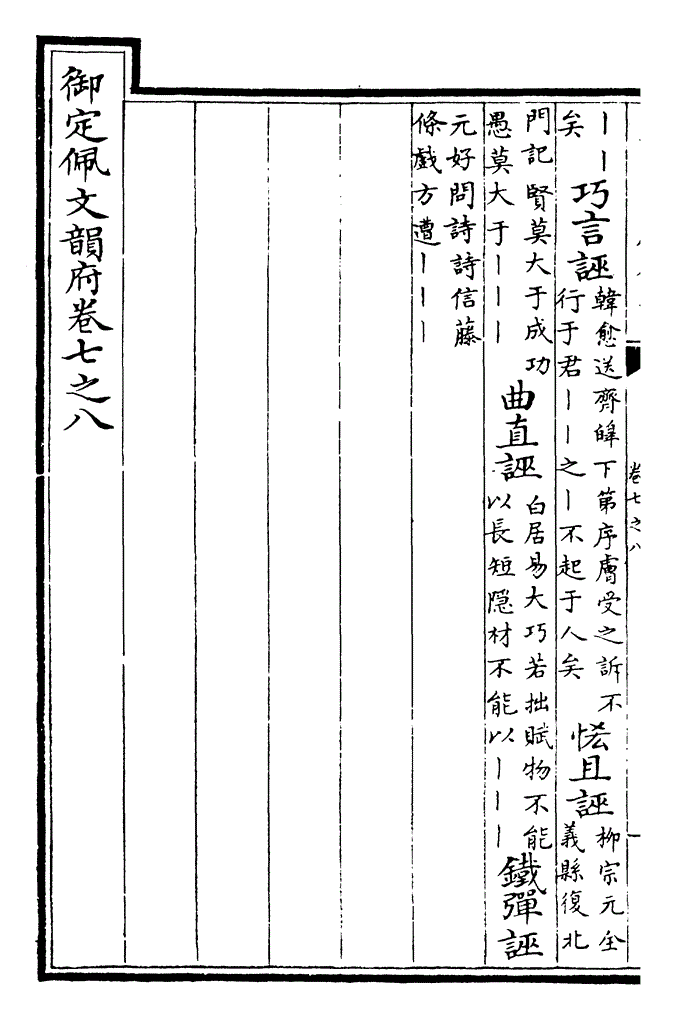 卷七之八
丨丨
矣
巧言誣
韓愈送齊皥下第序膚受之訴不
行于君丨丨之丨不起于人矣
恡且誣
柳宗元全
義縣復北
門記賢莫大于成功
愚莫大于丨丨丨
曲直誣
白居易大巧若拙賦物不能
以長短隱材不能以丨丨丨
鐵彈誣
元好問詩詩信藤
條戲方遭丨丨丨
御定佩文韻府卷七之八